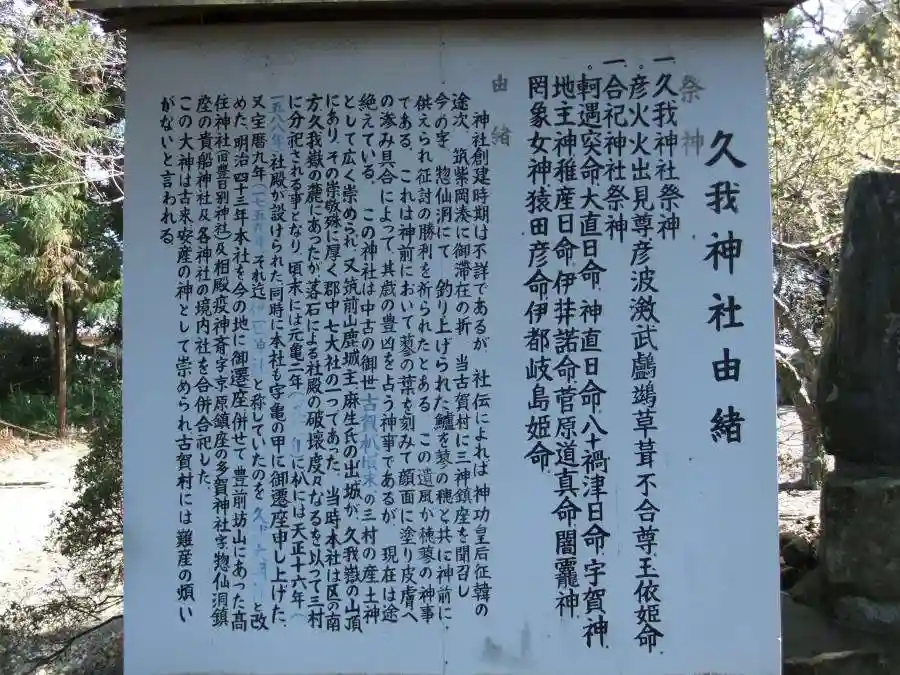 久我神社由緒
祭神
一 久我神社祭神
彦火火出見尊彦波激武鸕鷀草葺不合尊玉依姫命
一 合祀神社祭神
軻遇突命大直日命 神直日命八十禍津日命宇賀神
地主神稚産日命伊弉諾命菅原道真命闇龗神
罔象女神猿田彦命伊都岐島姫命
由緒
神社創建時期は不詳であるが 社伝によれば神功皇后征韓の
途次、筑紫岡湊に御滞在の折、当古賀村に三神鎮座を聞召し
今の字、惣仙洞にて 釣り上げられた鱸を蓼の穂と共に神前に
供えられ征討の勝利を祈られたとある この遺風が穂蓼の神事
である、これは神前において蓼の葉を刻みて顔面に塗り皮膚へ
の滲み具合によって、其歳の豊凶を占う神事であるが 現在は途
絶えている。 この神社は中古の御世古賀 杁 頃末の三村の産土神
として広く崇められ、又筑前山鹿城主、麻生氏の出城が、久我嶽の山頂
にあり、その崇敬殊に厚く郡中七大社の一つであった、当時本社は区の南
方久我嶽の麓にあったが落石による社殿の破壊度々なるを以って三村
に分祀される事となり、頃末には元亀二年 に杁には天正十六年(
一五八八年)社殿が設けられた同時に本社も字亀の甲に御遷座申し上げた、
又宝暦九年(一七五九年)それ迄 と称していたのを久 と改
めた、明治四十三年本社を今の地に御遷座併せて豊前坊山にあった高
住神社(旧豊日別神社)及相殿疫神斎字京原鎮座の多賀神社字惣仙洞鎮
座の貴船神社及各神社の境内社を合併合祀した。
この大神は古来安産の神として崇められ古賀村には難産の煩い
がないと言われる。